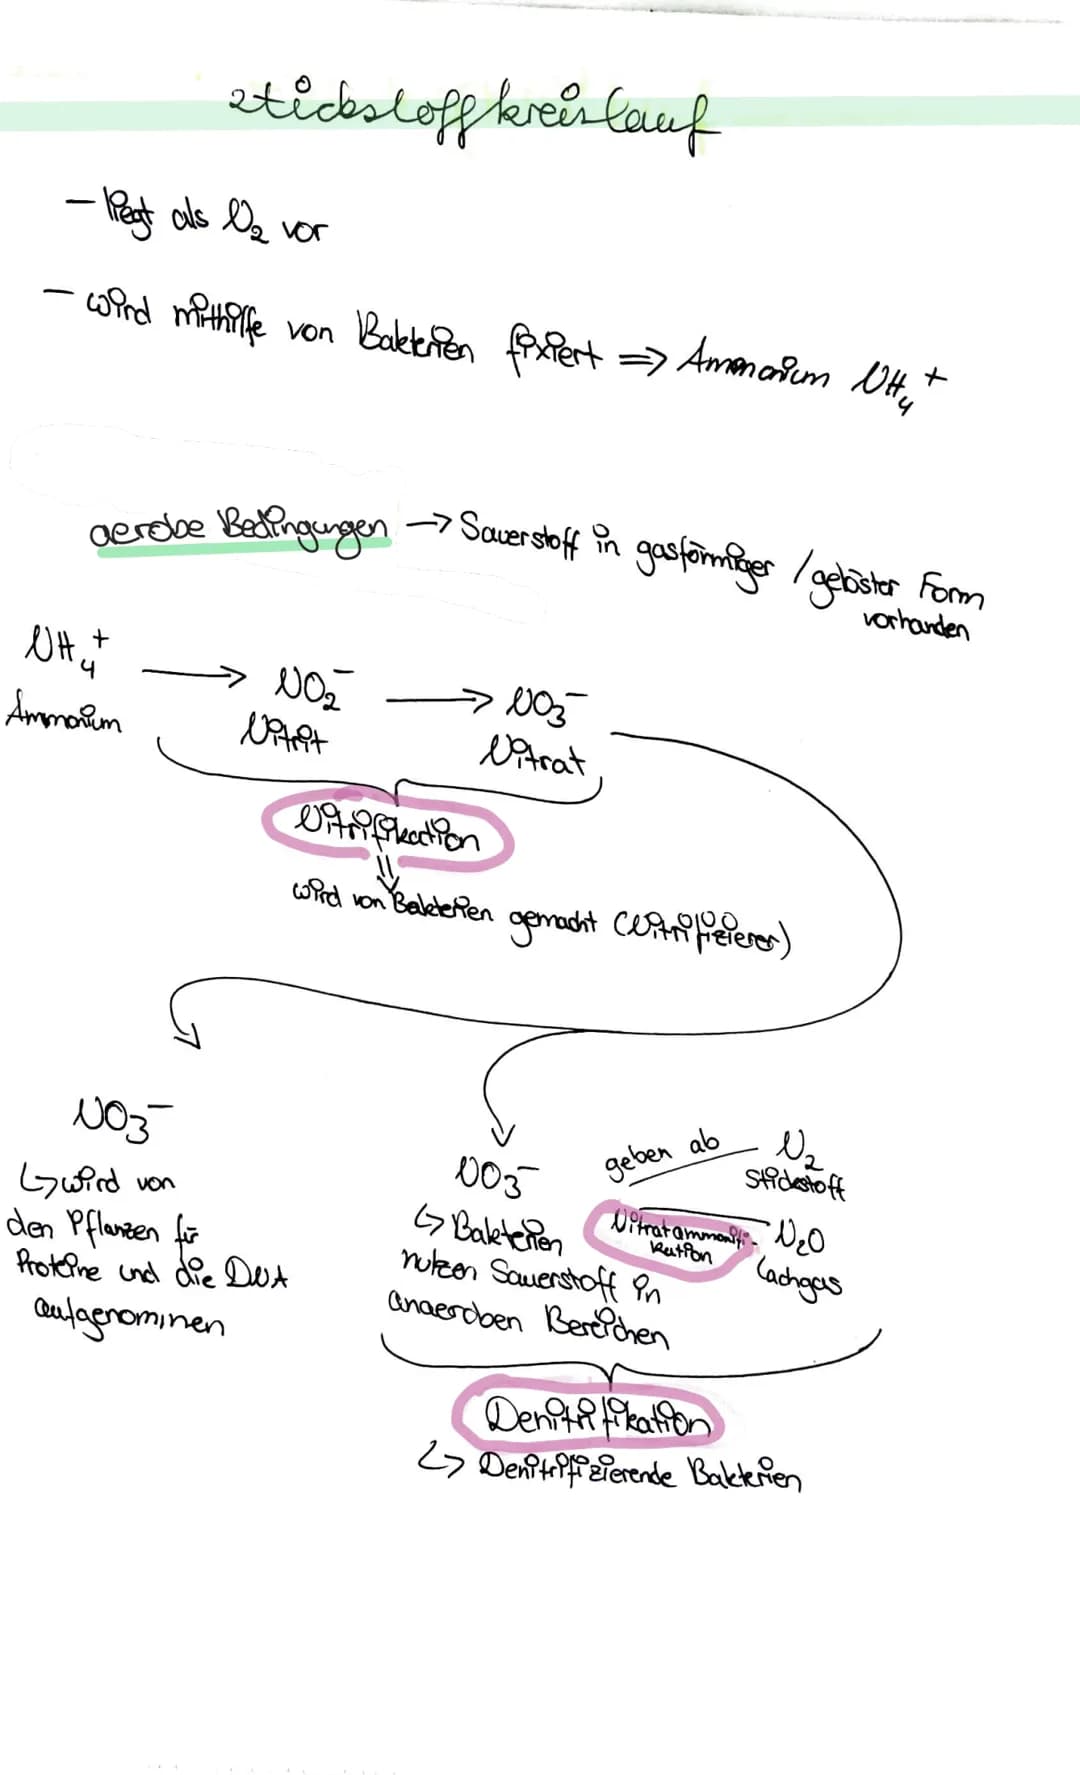 Stickstoffkreislauf
- liegt als N₂ vor
- wird mithilfe von Bakterien fixiert => Ammonium NH₄⁺
aerobe Bedingungen -> Sauerstoff in gasförmiger / gelöster Form
vorhanden
NH₄⁺ -> NO₂⁻ -> NO₃⁻
Ammonium Nitrit Nitrat
Nitrifikation
wird von Bakterien gemacht (Nitrifizierer)
NO₃⁻
↳ wird von
den Pflanzen für
Proteine und die DNA
aufgenommen
NO₃⁻
↳ Bakterien
nutzen Sauerstoff in
anaeroben Bereichen
geben ab
N₂
Stickstoff
Nitratammonifi-
kation
N₂O
Lachgas
Denitrifikation
↳ Denitrifizierende Bakterien